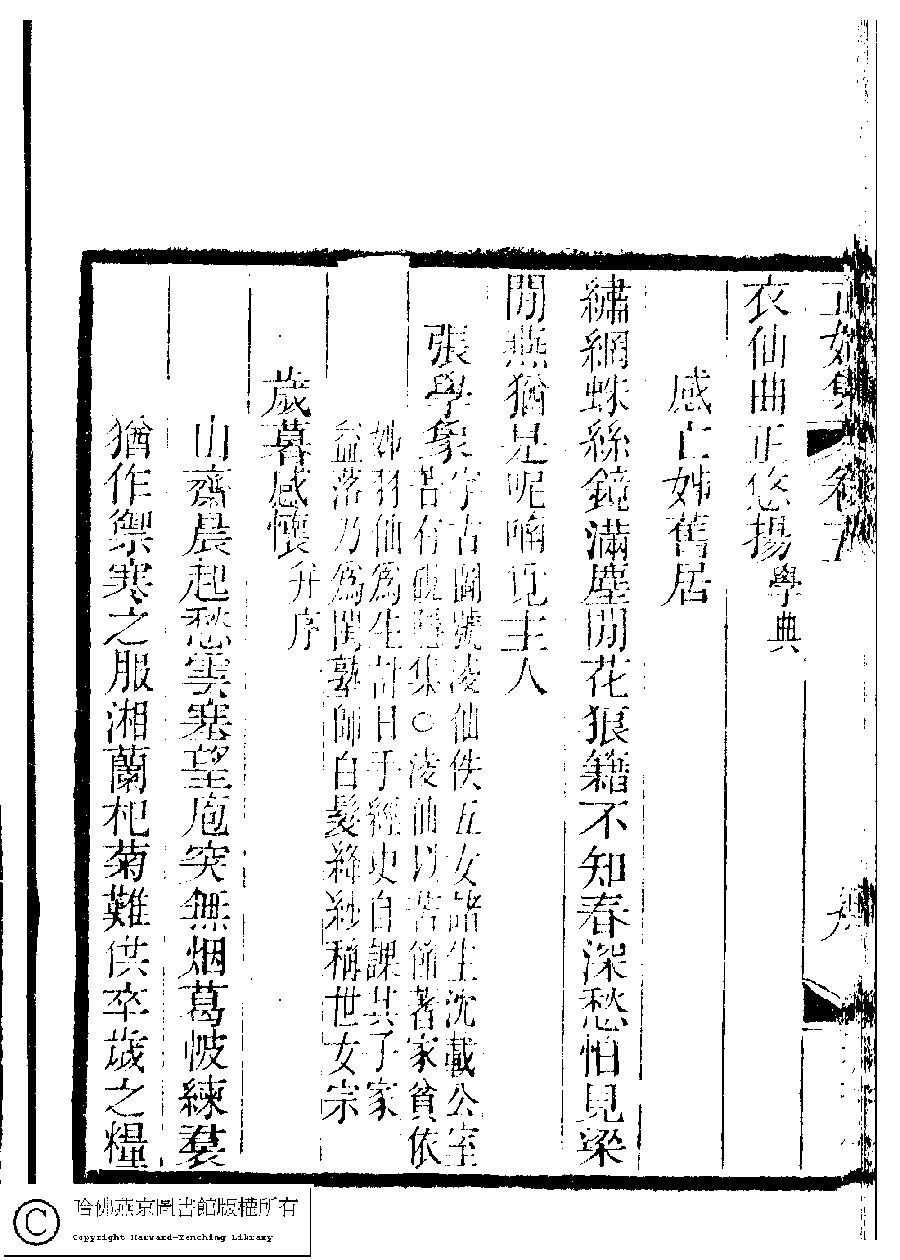 衣仙曲正悠揚學典
感亡姊舊居
繡網蛛絲鏡滿塵閒花狼籍不知春深愁怕見梁
閒燕猶是呢喃覓主人
張學象字古圖號凌仙佚五女諸生沈載公室
著有硯隱集○凌仙以苦節著家貧依
姊羽仙爲生計日手經史自課其子家
益落乃爲閨塾師白髮絳紗稱世女宗
歲暮感懷并序
山齋晨起愁雲塞望庖突無烟葛帔練裠
猶作禦寒之服湘蘭杞菊難供卒歲之糧
哈佛燕京圖書館版權所有
Copyright Harvard-Yenching Library